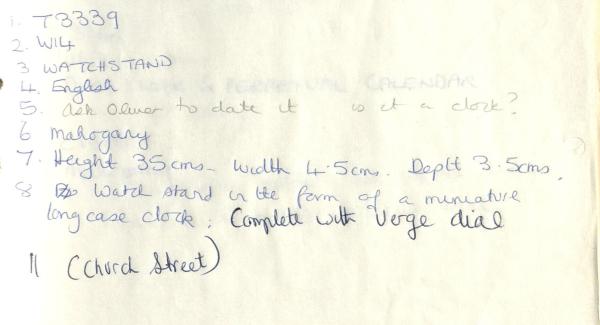 1. T3339
2. W14
3 WATCHSTAND
4. English
5. ask Oliver to date it is it a clock?
6 Mahogany
7. Height 35cms. Width 4.5cms. Depth 3.5cms.
8 Watch stand in the form of a miniature
long case clock. Complete with Verge dial
11 (Church Street)